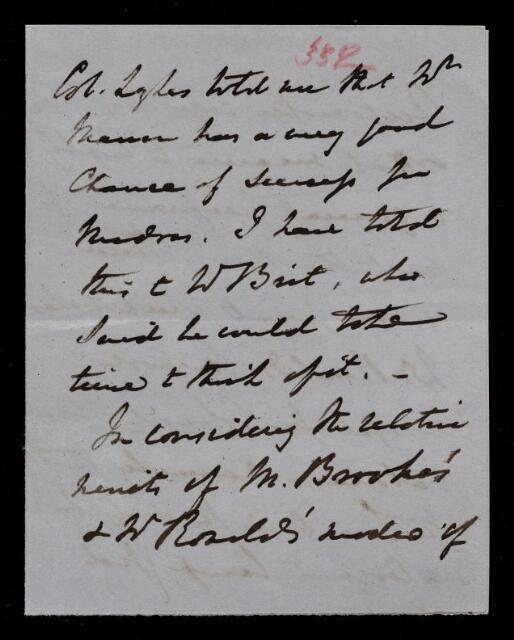 358
Col. Sykes told me that Mr
Mason has a very good
Chance of success for
Madras. I have told
this to Mr Birt, who
said he would take
time to think of it. —
In considering the relative
merits of Mr. Brooke's
& Mr Ronald's modes of